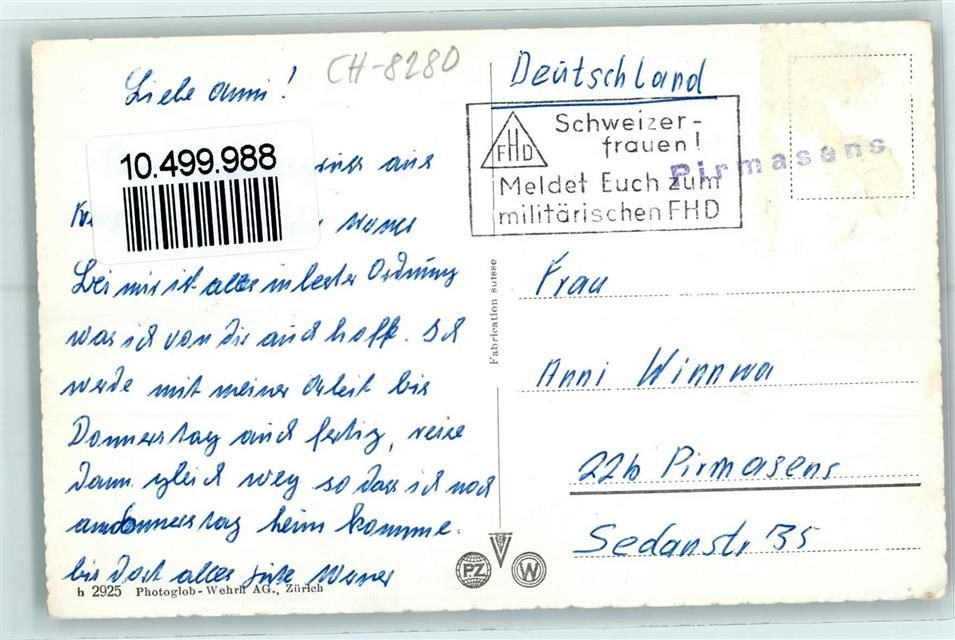 Liebe Anni!
CH-8280
Deutschland
10.499.988
aus
Werner
Bei mir ist alles in bester Ordnung
was ich von dir auch hoffe. Ich
werde mit meiner Arbeit bis
Donnerstag auch fertig, reise
dann gleich weg so dass ich noch
am Donnerstag heim komme.
bis dort alles gute Werner
h 2925 Photoglob-Wehrli AG., Zürich
FHD
Schweizer-
frauen!
Meldet Euch zum
militärischen FHD
Pirmasens
Fabrication suisse
Frau
Anni Winnwa
22b Pirmasens
Sedanstr 35
PZ
W